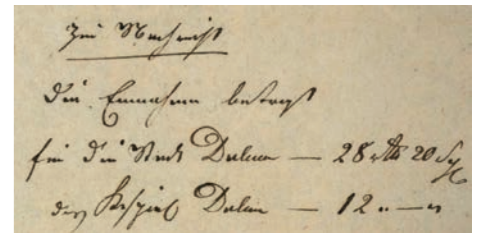 Zur Nachricht
Die Einnahme beträgt
für die Stadt Dülmen — 28 rth 20 Sg
das Kirspiel Dülmen — 12 " — "